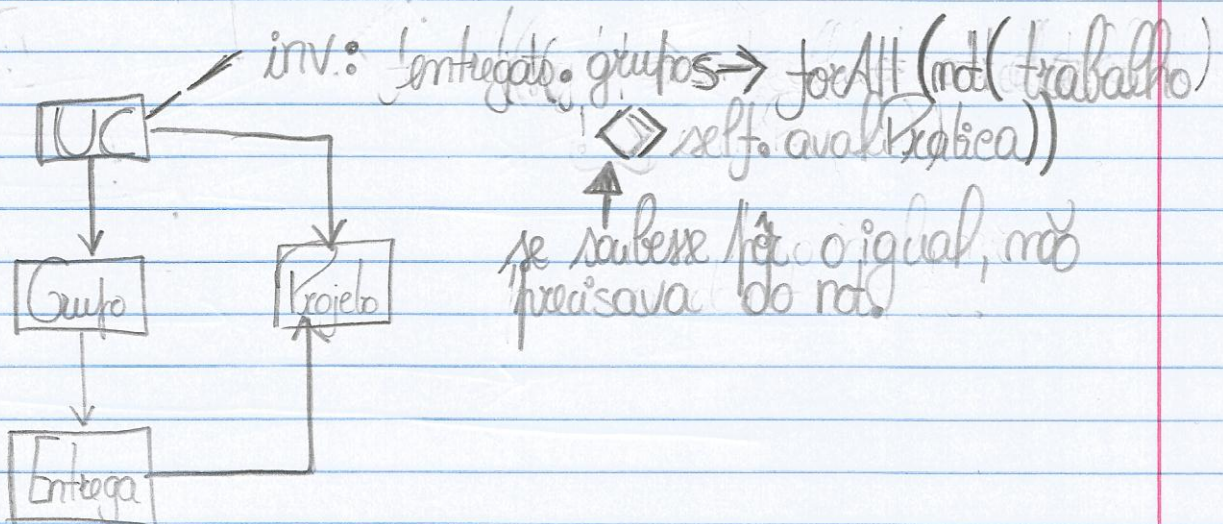 inv.: entregas. grupos → forAll (not( trabalho
UC
<> self. avalPratica))
se soubesse pôr o igual, não
precisava do not.
Grupo
Projeto
Entrega